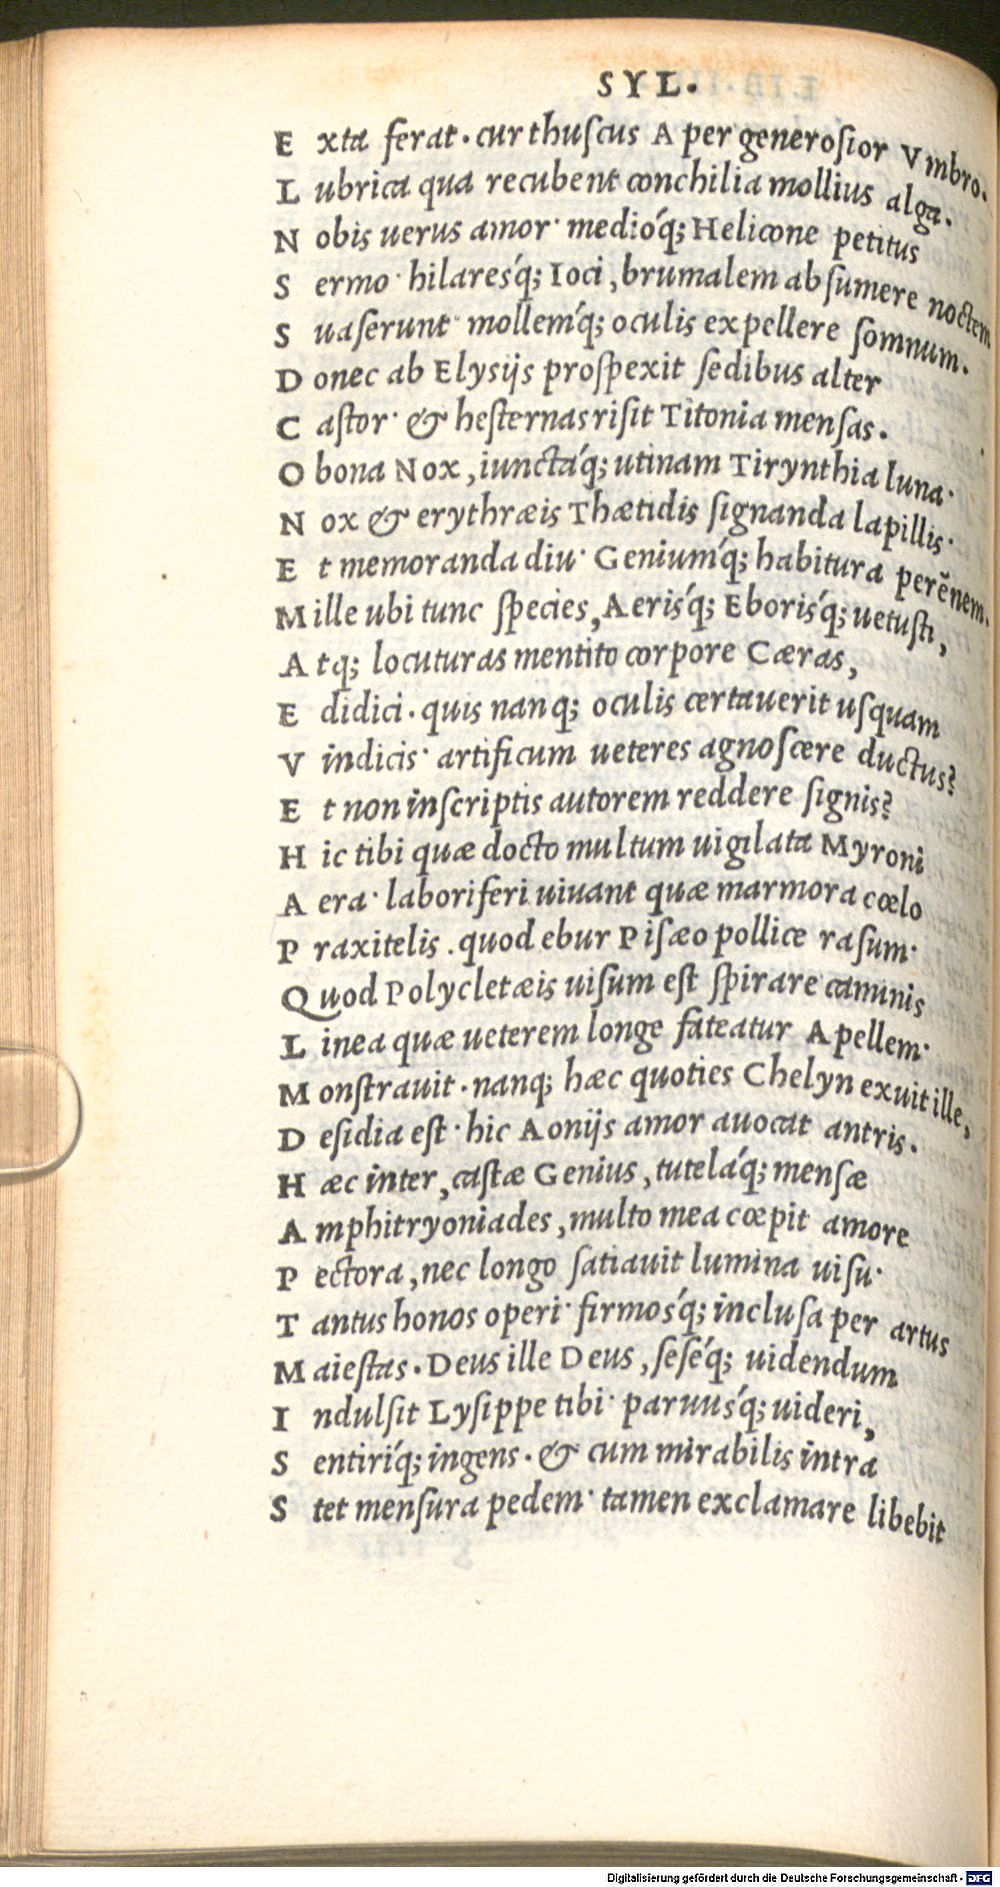 SYL.
E xta ferat·cur thuſcus Aper generoſior Vmbro.
L ubrica qua recubent conchilia mollius alga.
N obis uerus amor·medióq; Helicone petitus
S ermo·hilaresq́; Ioci, brumalem abſumere noctem
S uaſerunt·mollemq́; oculis expellere ſomnum.
D onec ab Elysijs proſpexit ſedibus alter
C aſtor·& heſternas riſit Titonia menſas.
O bona Nox, iunctáq; utinam Tirynthia luna·
N ox & erythræis Thætidis ſignanda lapillis·
E t memoranda diu·Geniumq́; habitura perēnem.
M ille ubi tunc ſpecies, Aerisq́; Eborisq́; uetuſti,
A tq; locuturas mentito corpore Cæras,
E didici·quis nanq; oculis certauerit uſquam
V indicis·artificum ueteres agnoſcere ductus?
E t non inſcriptis autorem reddere ſignis?
H ic tibi quæ docto multum uigilata Myroni
A era·laboriferi uiuant quæ marmora cœlo
P raxitelis.quod ebur Piſæo pollice raſum·
Q uod Polycletæis uiſum eſt ſpirare caminis
L inea quæ ueterem longe fateatur Apellem·
M onſtrauit·nanq; hæc quoties Chelyn exuit ille,
D eſidia eſt·hic Aonijs amor auocat antris.
H æc inter, caſtæ Genius, tuteláq; menſæ
A mphitryoniades, multo mea cœpit amore
P ectora, nec longo ſatiauit lumina uiſu·
T antus honos operi·firmosq́; incluſa per artus
M aieſtas·Deus ille Deus, ſeſéq; uidendum
I ndulſit Lyſippe tibi·paruusq́; uideri,
S entiriq́; ingens·& cum mirabilis intra
S tet menſura pedem·tamen exclamare libebit
Digitalisierung gefördert durch die Deutsche Forschungsgemeinschaft - DFG